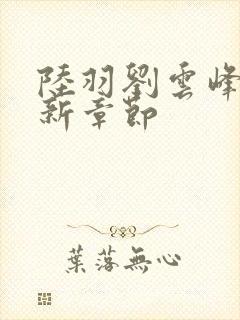 陸羽劉雲峰
新章節
葉落無心